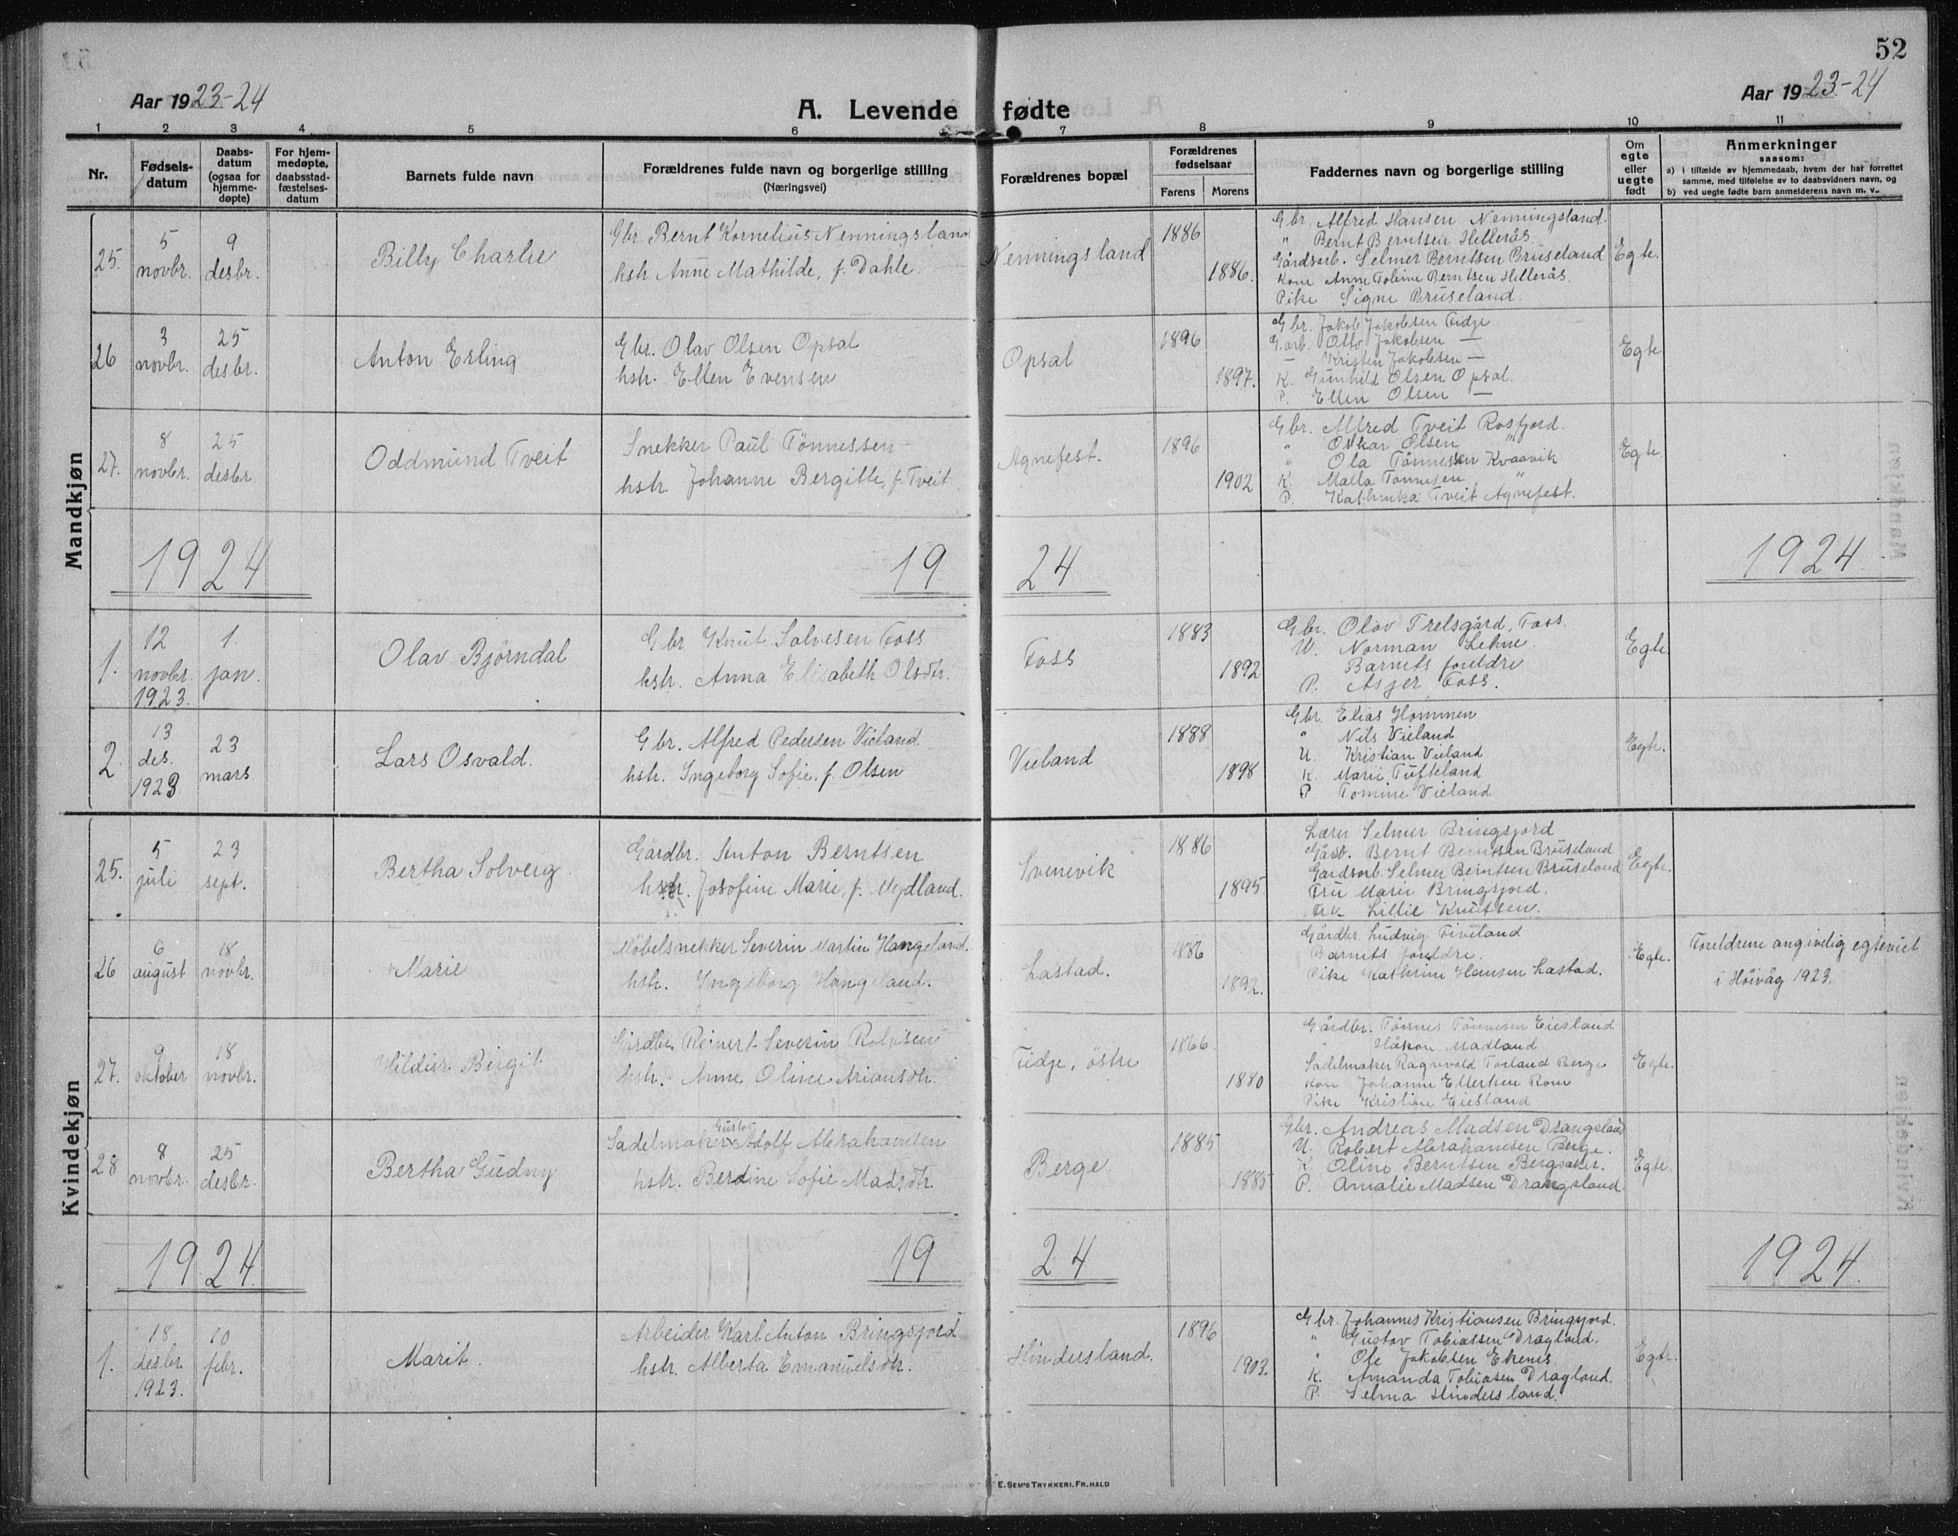 52
Aar 1923-24
A. Levende fødte
Aar 1923-24
1 2 3 4 5 6 7 8 9 10 11
Nr.
Fødsels-
datum
Daabs-
datum
(ogsaa for
hjemme-
døpte)
For hjem-
medøpte,
daabsstad-
fæstelses-
datum
Barnets fulde navn
Forældrenes fulde navn og borgerlige stilling
(Næringsvei)
Forældrenes bopæl
Forældrenes
fødselsaar
Farens
Morens
Faddernes navn og borgerlige stilling
Om
egte
eller
uegte
født
Anmerkninger
saasom:
a) i tilfælde av hjemmedaab, hvem der har forrettet
samme, med tilføielse av to daabsvidners navn, og
b) ved uegte fødte barn anmelderens navn m. v.
Mandkjøn
25.
5
novbr.
9
desbr.
Billy Charlie
Gbr. Bernt Kornelius Nenningsland
hstr. Anne Mathilde, f. Dahle.
Nenningsland
1886
1886.
Gbr. Alfred Hansen Nenningsland.
" Bernt Berntsen Hellerås.
Gårdsarb. Selmer Berntsen Bruseland
Kone Anne Tobine Berntsen Hellerås
Pike Signe Bruseland.
Egte.
26
3
novbr.
25
desbr.
Anton Erling
Gbr. Olav Olsen Opsal
hstr. Ellen Evensen
Opsal
1896
1897.
Gbr. Jakob Jakobsen Fidje
G.arb. Olav Jakobsen —
— Kristen Jakobsen —
K. Gunhild Olsen Opsal.
P. Ellen Olsen —
Egte
27.
8
novbr.
25
desbr.
Oddmund Tveit
Snekker Paul Tönnessen
hstr. Johanne Bergitte, f. Tveit.
Agnefest.
1896
1902
Gbr. Alfred Tveit Rosfjord.
" Oskar Olsen "
" Ola Tönnessen Kvaavik
K. Malla Tönnesen "
P. Kathinka Tveit Agnefest.
Egte
1924 1924 1924
1.
12
novbr.
1923.
1.
jan.
Olav Bjørndal
Gbr Knut Salvesen Foss
hstr. Anna Elisabeth Olsdtr.
Foss
1883
1892
Gbr. Olav Trelsgård, Foss.
U. Norman Lehne.
Barnets foreldre
P. Asjer Foss.
Egte
2.
13
des.
1923
23
mars
Lars Osvald.
Gbr. Alfred Pedersen Vieland.
hstr. Ingeborg Sofie, f. Olsen
Vieland
1888
1898
Gbr. Elias Hommen
" Nils Vieland
U. Kristian Vieland
K. Marie Tufteland
P Tomine Vieland
Egte.
Kvindekjøn
25.
5
juli
23
sept.
Bertha Solveig.
Gårdbr. Anton Berntsen
hstr. Josofine Marie, f. Mydland.
Svenevik
1886
1895
Lærer Selmer Bringsjord
Gårb. Bernt Berntsen Bruseland
Gardsarb. Selmer Berntsen Bruseland
Fru Marie Bringsjord.
Frk Lillie Knutsen.
Egte.
26
6
august
18
novbr.
Marie
Möbelsnekker Severin Martin Hangeland.
hstr. Yngeborg Hangeland.
Lastad.
1886
1892.
Gårdbr. Ludvig Fiveland
Barnets foreldre.
Pike Kathrine Hansen Lastad.
Egte.
Foreldrene angivelig egteviet
i Höivåg 1923.
27.
9
oktober
18
novbr.
Hildur Birgit
Gårdbr. Reinert Severin Rolvsen
hstr. Anne Oline Ariansdtr.
Fidje, östre
1866
1880
Gårdbr. Tönnes Tönnesen Eiesland
" Håkon Madland
Sadelmaker Ragnvald Forland Berge
Kone Johanne Ellerken Rom
Pike Kristine Eiesland
Egte.
28
8
novbr.
25
desbr.
Bertha Gudny
Sadelmaker Gustav Adolf Abrahamsen
hstr. Berdine Sofie Madsdtr.
Berge.
1885
1885
Gbr. Andreas Madsen Drangsland
U. Robert Abrahamsen Berge.
K. Oline Berntsen Bergsaker.
P. Amalie Madsen Drangsland
Egte.
1924 1924 1924
1.
18
desbr.
1923.
10
febr.
Marit.
Arbeider Karl Anton Bringsjord
hstr. Alberta Emanuelsdtr.
Hindersland.
1896
1903.
Gbr. Johannes Kristiansen Bringsjord.
" Gustav Tobiassen Dragland.
" Ole Jakobsen Ekenes.
K. Amanda Tobiasen Dragland.
P. Selma Hindersland.
Egte.
E. SEM'S TRYKKERI, FR. HALD